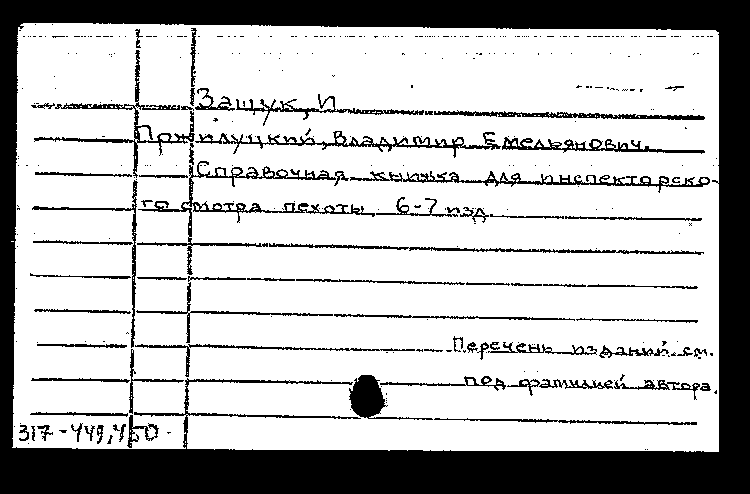 Защук, И
Пржилуцкий, Владимир Емельянович.
Справочная книжка для инспекторско-
го смотра пехоты. 6-7 изд.
Перечень изданий см.
под фамилией автора.
317-449,450